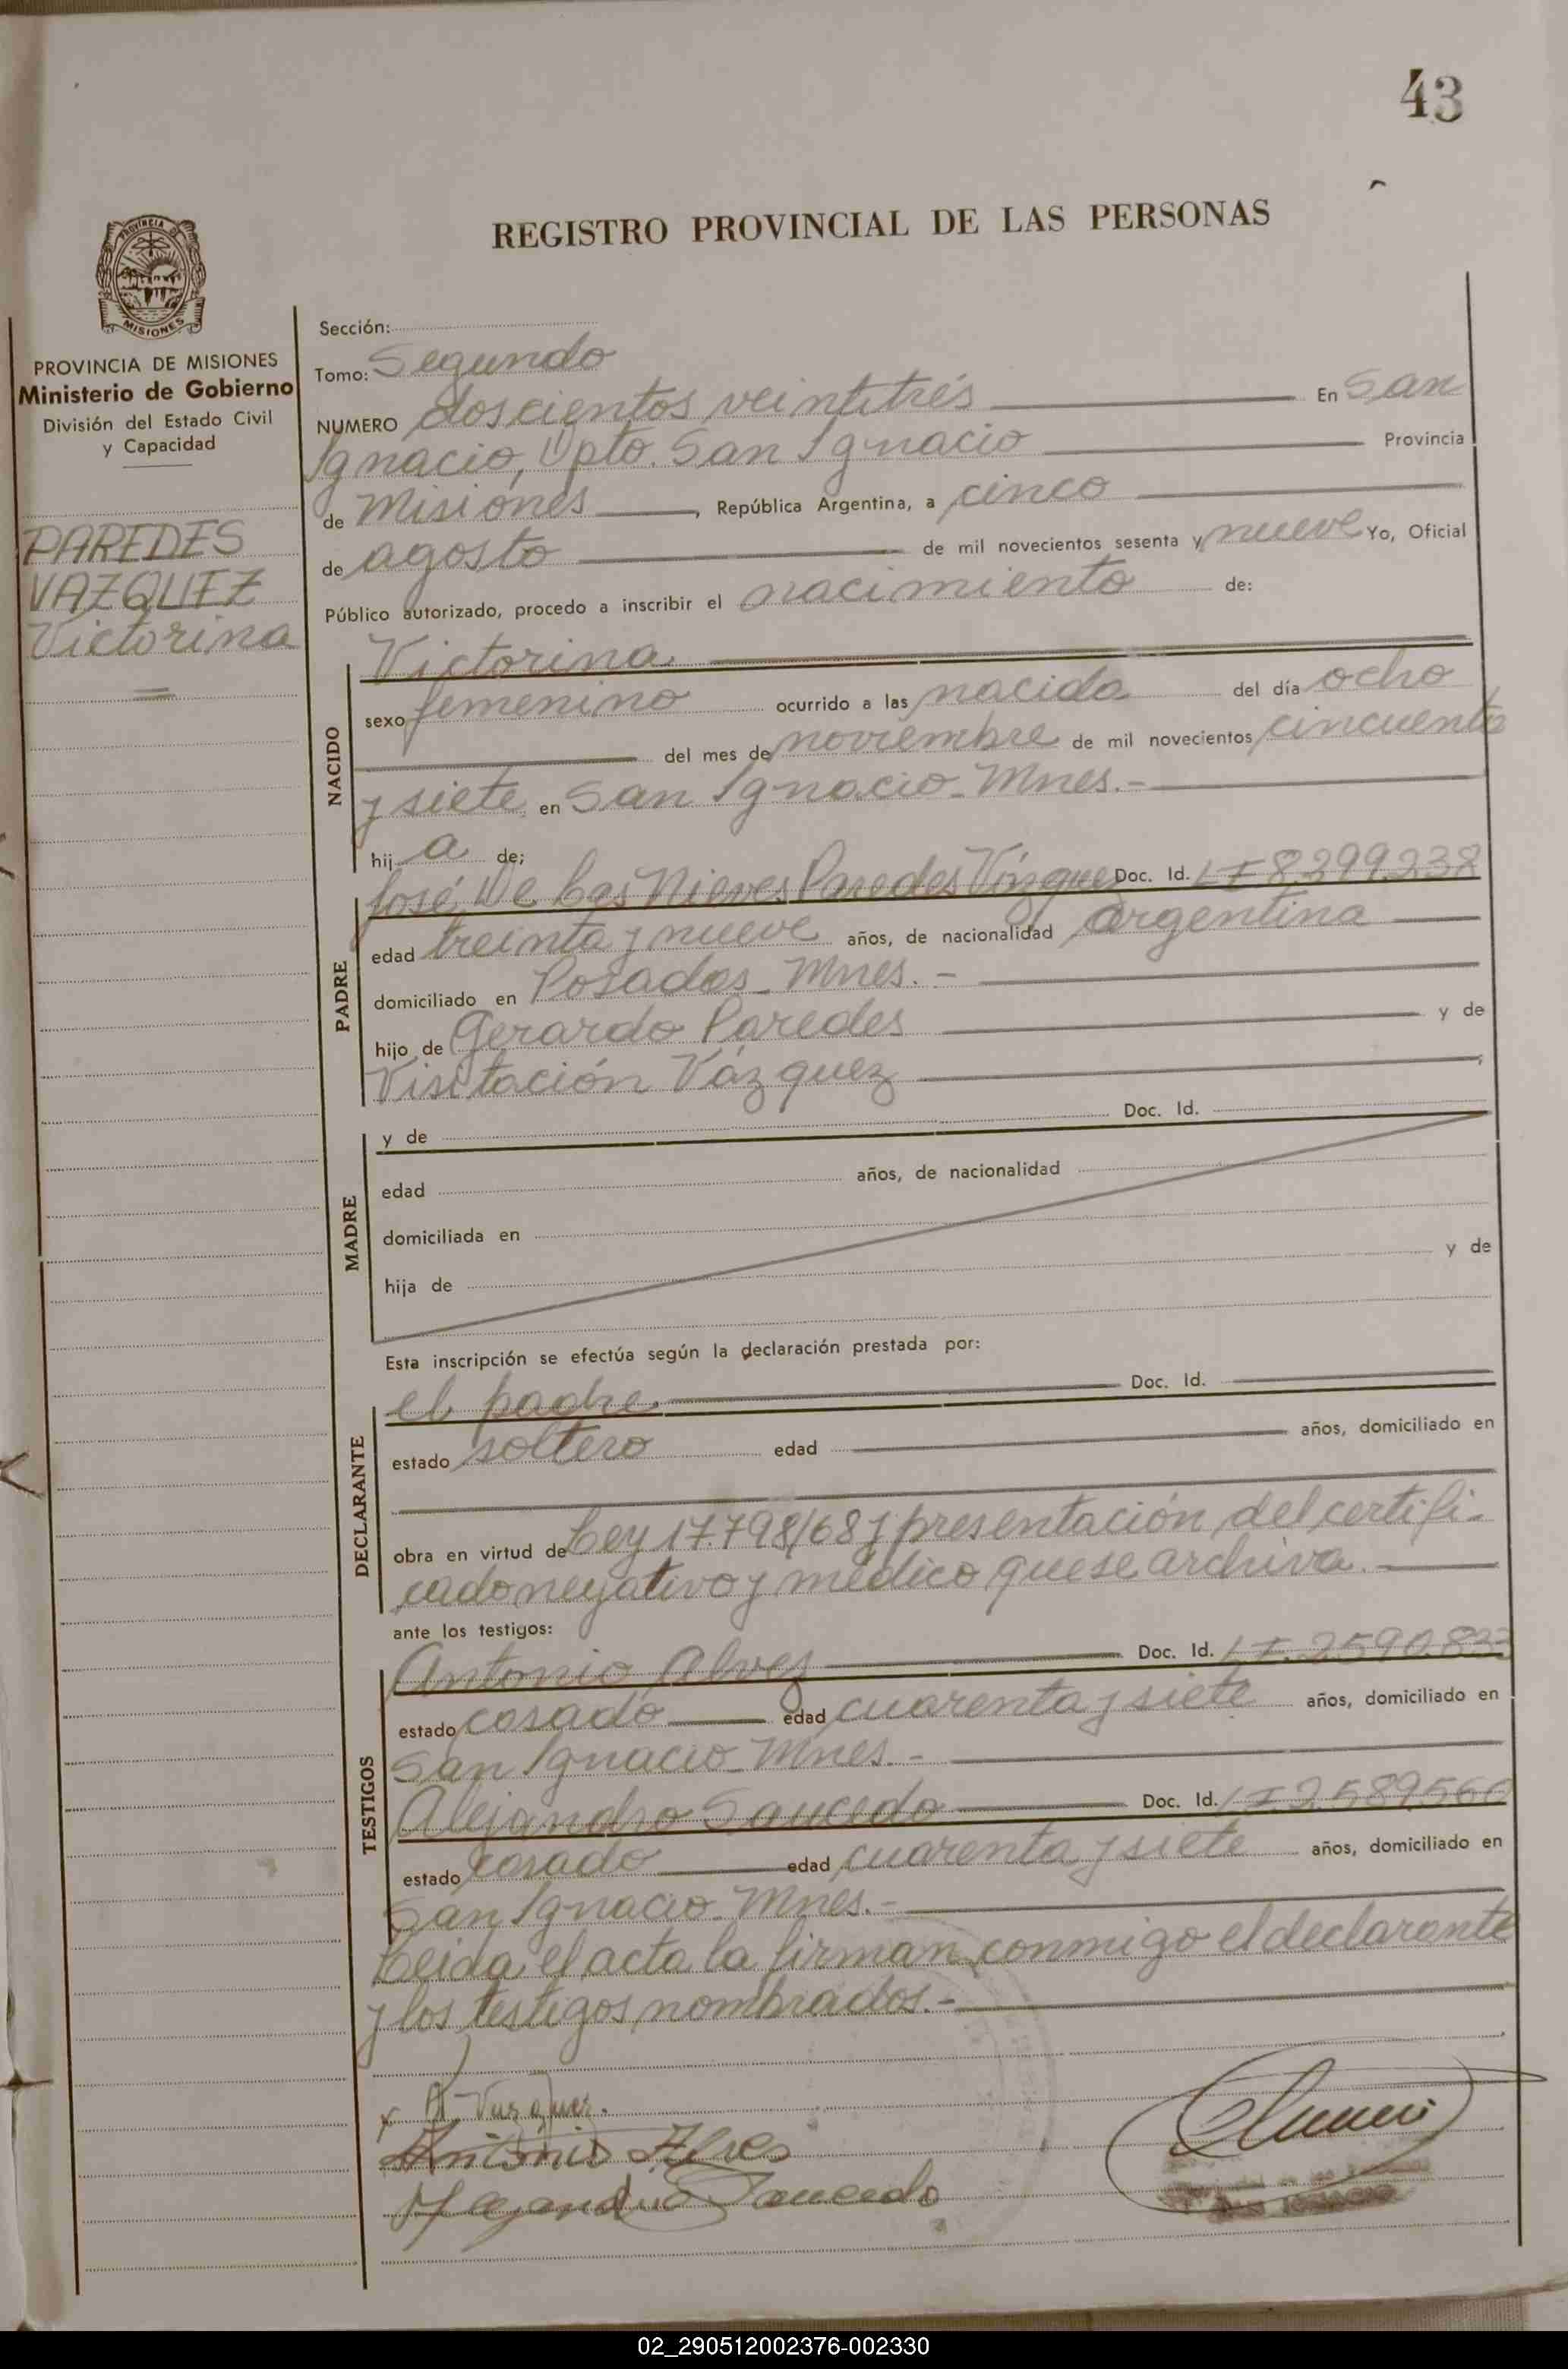 43
REGISTRO PROVINCIAL DE LAS PERSONAS
PROVINCIA DE MISIONES
PROVINCIA DE MISIONES
Ministerio de Gobierno
División del Estado Civil
y Capacidad
PAREDES
VAZQUEZ
Victorina
Sección:
Tomo: Segundo
NUMERO doscientos veintitrés En San
Ignacio, Dpto. San Ignacio Provincia
de Misiones, República Argentina, a cinco
de agosto de mil novecientos sesenta y nueve Yo, Oficial
Público autorizado, procedo a inscribir el nacimiento de:
NACIDO
Victorina
sexo femenino ocurrido a las nacida del día ocho
del mes de noviembre de mil novecientos cincuenta
y siete en San Ignacio-Mnes.-
hij a de;
PADRE
José De Las Nieves Paredes Vázquez Doc. Id. LE 8.299.238
edad treinta y nueve años, de nacionalidad argentina
domiciliado en Posadas-Mnes.-
hijo de Gerardo Paredes y de
Visitación Vázquez ;
MADRE
y de Doc. Id.
edad años, de nacionalidad
domiciliada en
hija de y de
Esta inscripción se efectúa según la declaración prestada por:
DECLARANTE
el padre. Doc. Id.
estado soltero edad años, domiciliado en
obra en virtud de Ley 17.798/68 y presentación del certifi-
cado negativo y médico que se archiva.
ante los testigos:
TESTIGOS
Antonio Alvez Doc. Id. LE. 2590.833
estado casado edad cuarenta y siete años, domiciliado en
San Ignacio-Mnes.-
Alejandro Saucedo Doc. Id. LE. 2.589.560
estado casado edad cuarenta y siete años, domiciliado en
San Ignacio-Mnes.-
Leida el acta la firman conmigo el declarante
y los testigos nombrados.-
x Vazquez.
Antonio Alves
Alejandro Saucedo
SAN IGNACIO
02_290512002376-002330